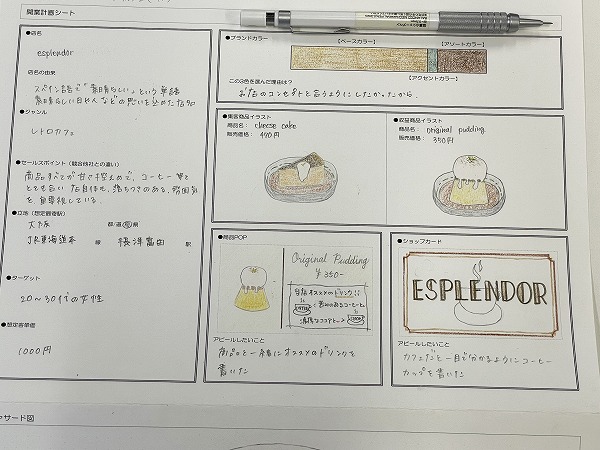 開業計画シート
●店名
esplendor
店名の由来
スペイン語で「素晴らしい」という単語
素晴らしい日や人などの思いを込めた店名
●ジャンル
レトロカフェ
●セールスポイント（競合他社との違い）
商品すべてが甘さ控えめで、コーヒー等と
とても合い
自身も、落ちつきのある、雰囲気
を重視している。
●立地（想定最寄駅）
大阪 都/道/府/県
JR東海道本 線 摂津富田 駅
●ターゲット
20〜30代の女性
●想定客単価
1000円
●ブランドカラー
【ベースカラー】
【アソートカラー】
【アクセントカラー】
この3色を選んだ理由は？
お店のコンセプトと合うようにしたかったから.
●集客商品イラスト
商品名： cheese cake
販売価格： 490円
●収益商品イラスト
商品名： Original pudding.
販売価格： 350円
●商品POP
Original Pudding
¥350-
オススメのドリンク
コーヒー
濃厚なココア
アピールしたいこと
商品と一緒にオススメのドリンクを
書いた
●ショップカード
ESPLENDOR
アピールしたいこと
カフェだと一目で分かるようにコーヒー
カップを書いた
サード図